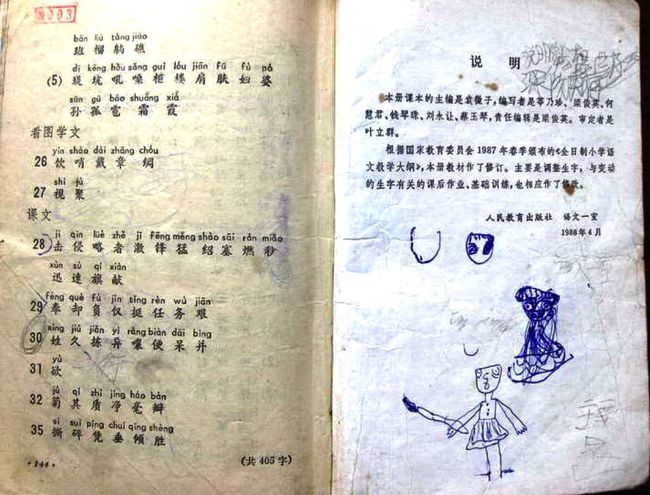 0003
bān liú tǎng jiāo
班 榴 躺 礁
dī kēng hǒu sǎng guì lóu jiān fū fù pó
(5) 堤 坑 吼 嗓 柜 楼 肩 肤 妇 婆
sūn gū báo shuāng xiá
孙 孤 雹 霜 霞
看图学文
yǐn shào dài zhāng chóu
26 饮 哨 戴 章 绸
shì jù
27 视 聚
课文
jī qīn lüè zhě jī fēng měng shào sāi rán miǎo
28 击 侵 略 者 激 锋 猛 绍 塞 燃 秒
xùn sù qí xiàn
迅 速 旗 献
fèng què fù jǐn tǐng rèn wù jiān
29 奉 却 负 仅 挺 任 务 艰
xìng jiǔ liàn yì rǎng biàn dāi bìng
30 姓 久 拣 异 嚷 便 呆 并
yù
31 欲
jú qí zhì jìng háo bàn
32 菊 其 质 净 毫 瓣
sī suì píng chuí qīng shèng
35 撕 碎 凭 垂 倾 胜
·144·
(共 405 字)
说 明
本册课本的主编是袁微子,编写者是李乃珍、梁俊英、何
慧君、钱琴珠、刘永让、蔡玉琴,责任编辑是梁俊英。审定者是
叶立群。
根据国家教育委员会 1987 年春季颁布的《全日制小学语
文教学大纲》,本册教材作了修订。主要是调整生字,与变动
的生字有关的课后作业、基础训练,也相应作了修改。
人民教育出版社 语文一室
1988 年 4 月
我
是